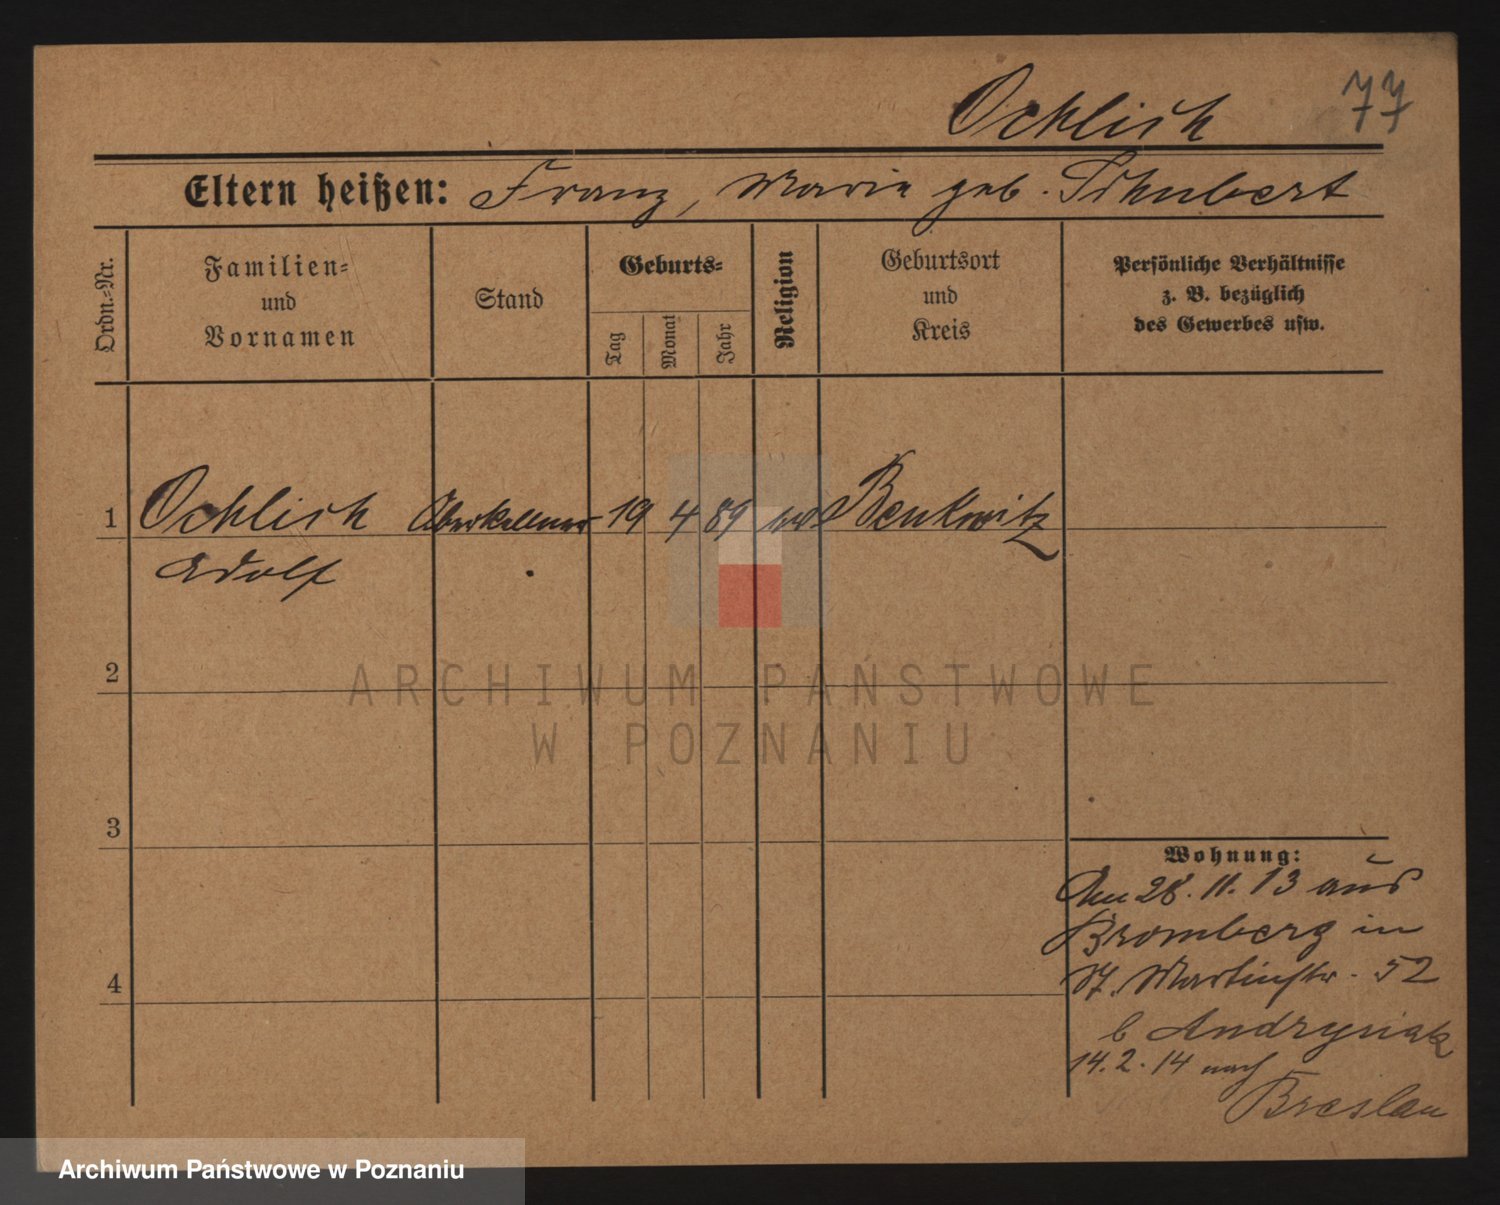 Ochlich 77
Eltern heißen: Franz, Marie geb. Schubert
Ordn.-Nr.
Familien-
und
Vornamen
Stand
Geburts-
Tag
Monat
Jahr
Religion
Geburtsort
und
Kreis
Persönliche Verhältnisse
z. B. bezüglich
des Gewerbes usw.
1 Ochlich Oberkellner 19 4 89 Benkwitz
Adolf
2
3
4
Wohnung:
Am 28. 11. 13 aus
Bromberg in
St. Martinstr. 52
b Andrysiak
14. 2. 14 nach
Breslau
ARCHIWUM PAŃSTWOWE
W POZNANIU
Archiwum Państwowe w Poznaniu